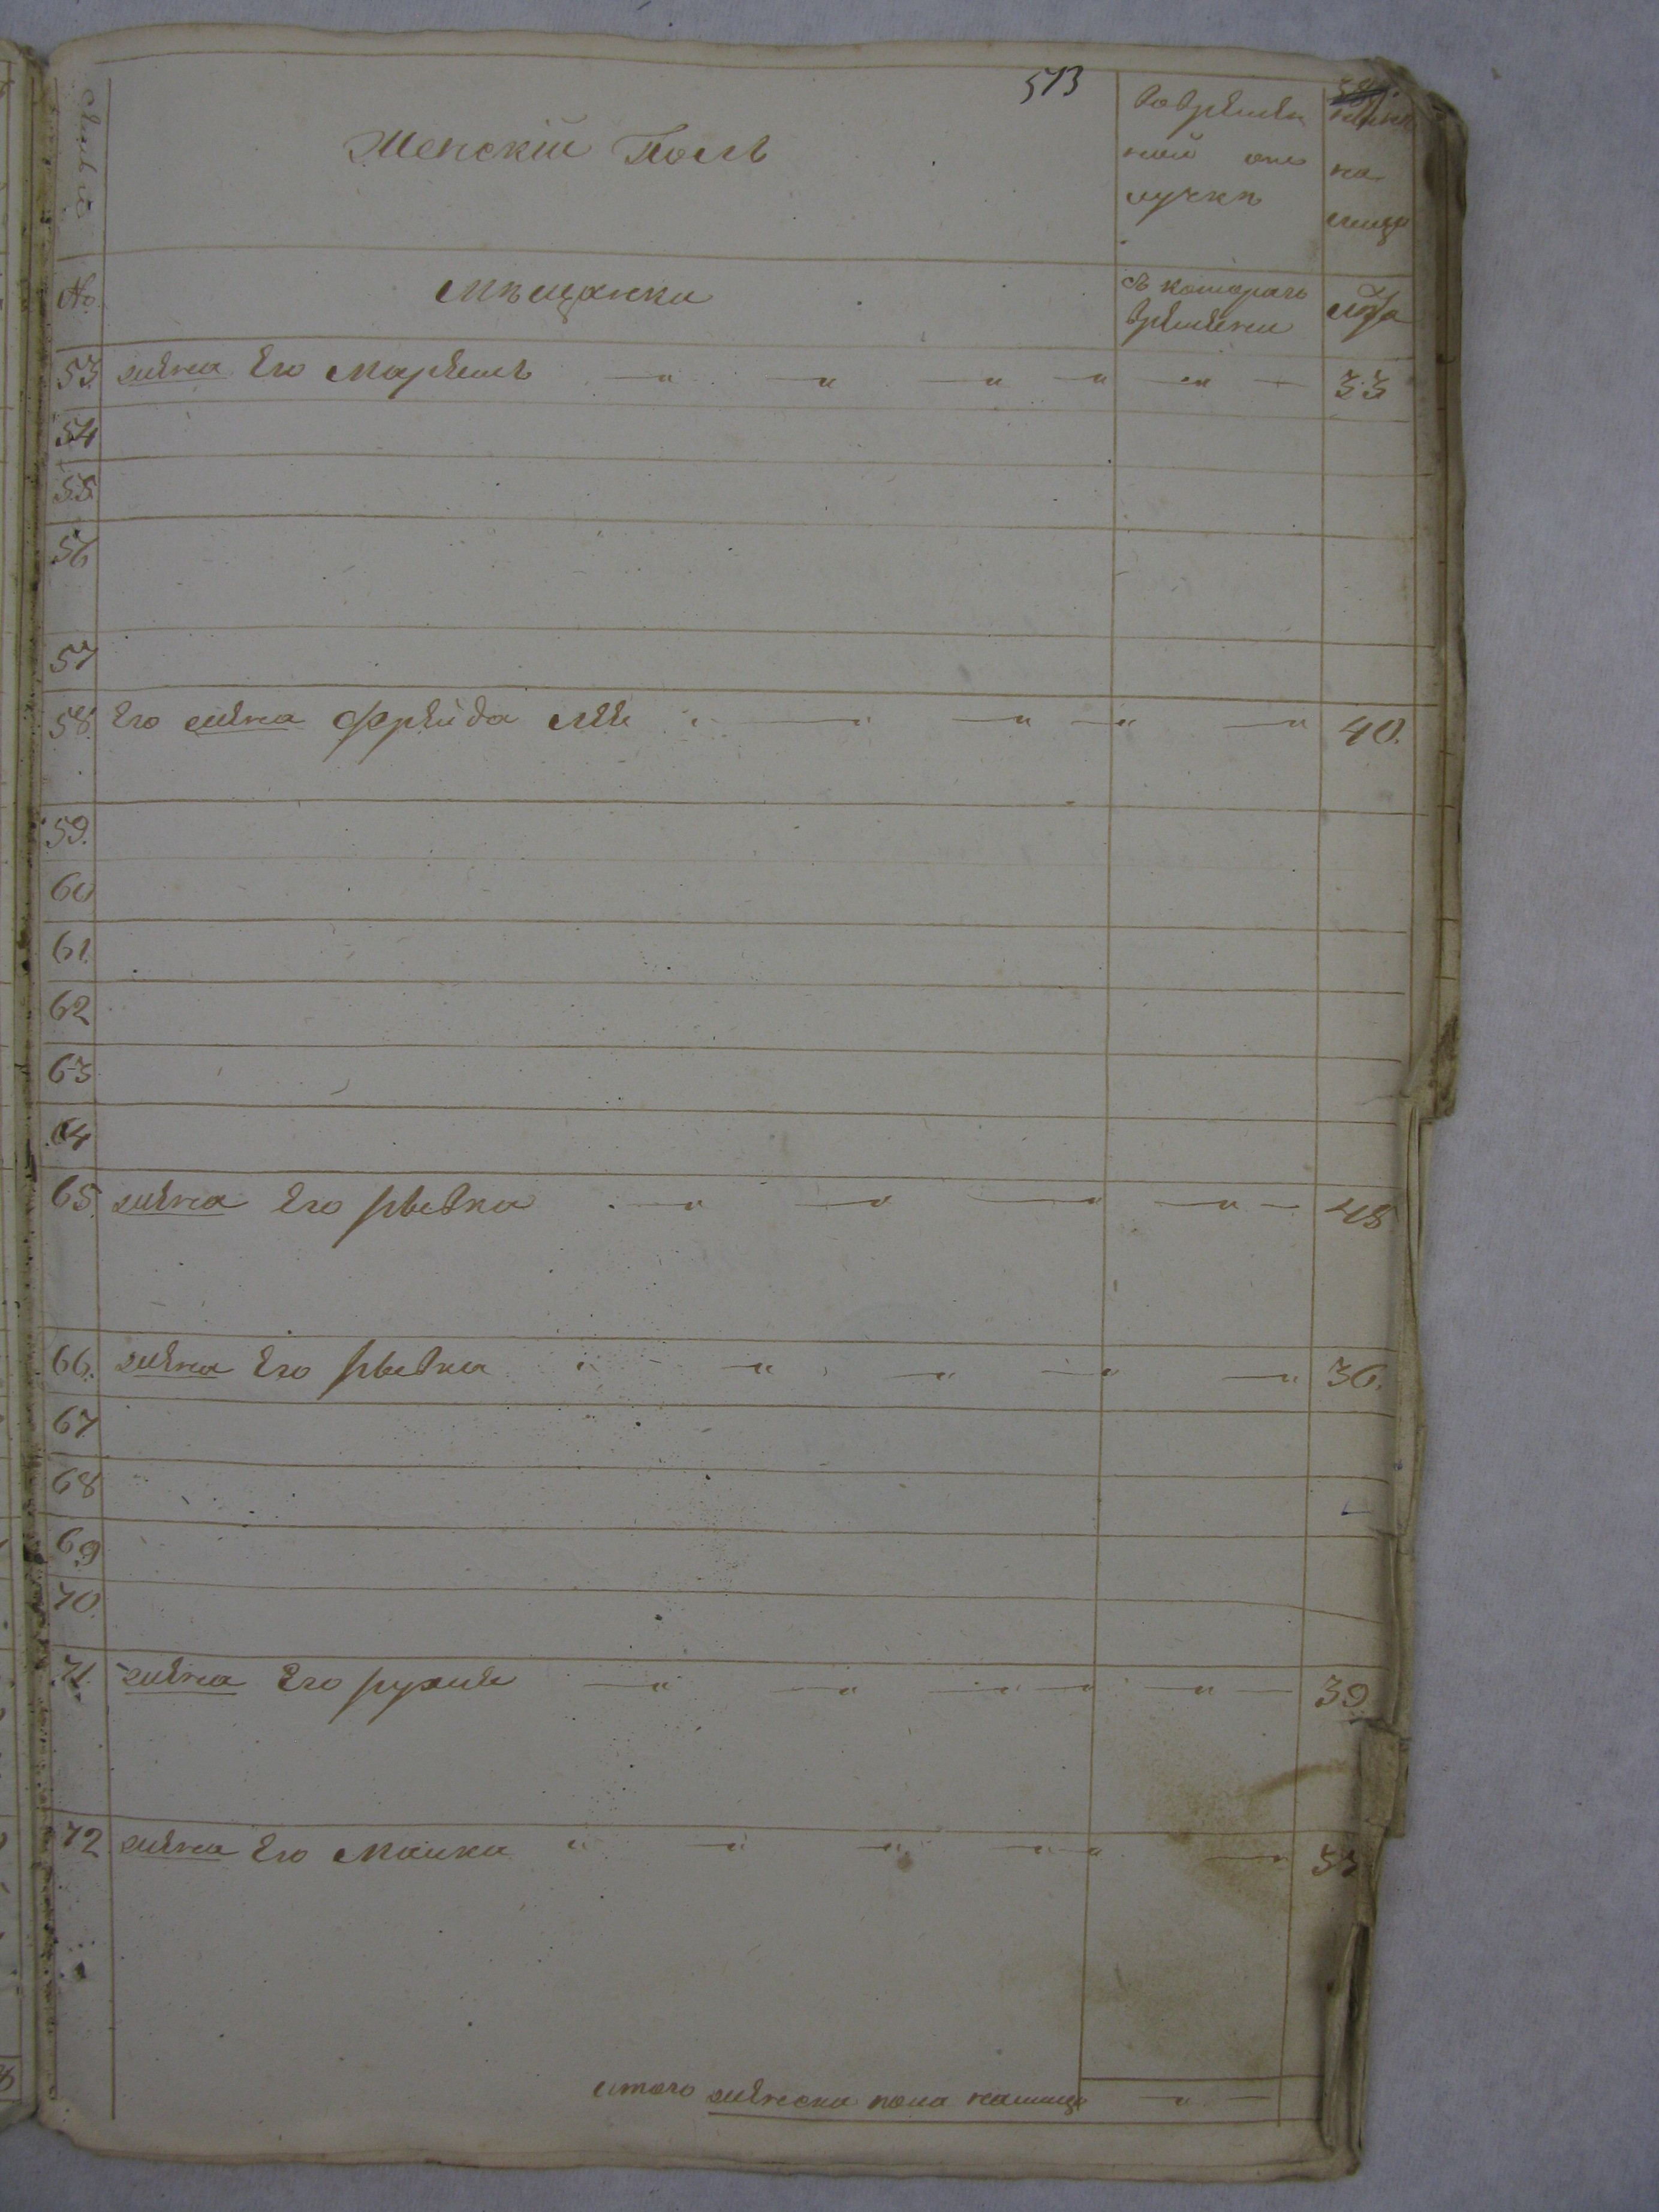 573
Женскій Полъ
Вовремян
ной от
лучкѣ
на
лицо
№
Мѣщанки
съ котораго
времени
лѣта
53 жена Его Мариемъ 33
54
55
56
57
58 Его жена Фрейда Лея 40.
59.
60
61.
62
63
64
65 жена Его ривка 48
66. жена Его ривка 36.
67
68
69
70.
71. жена Его рухля 39
72 жена Его Малка
итого женска пола налицо